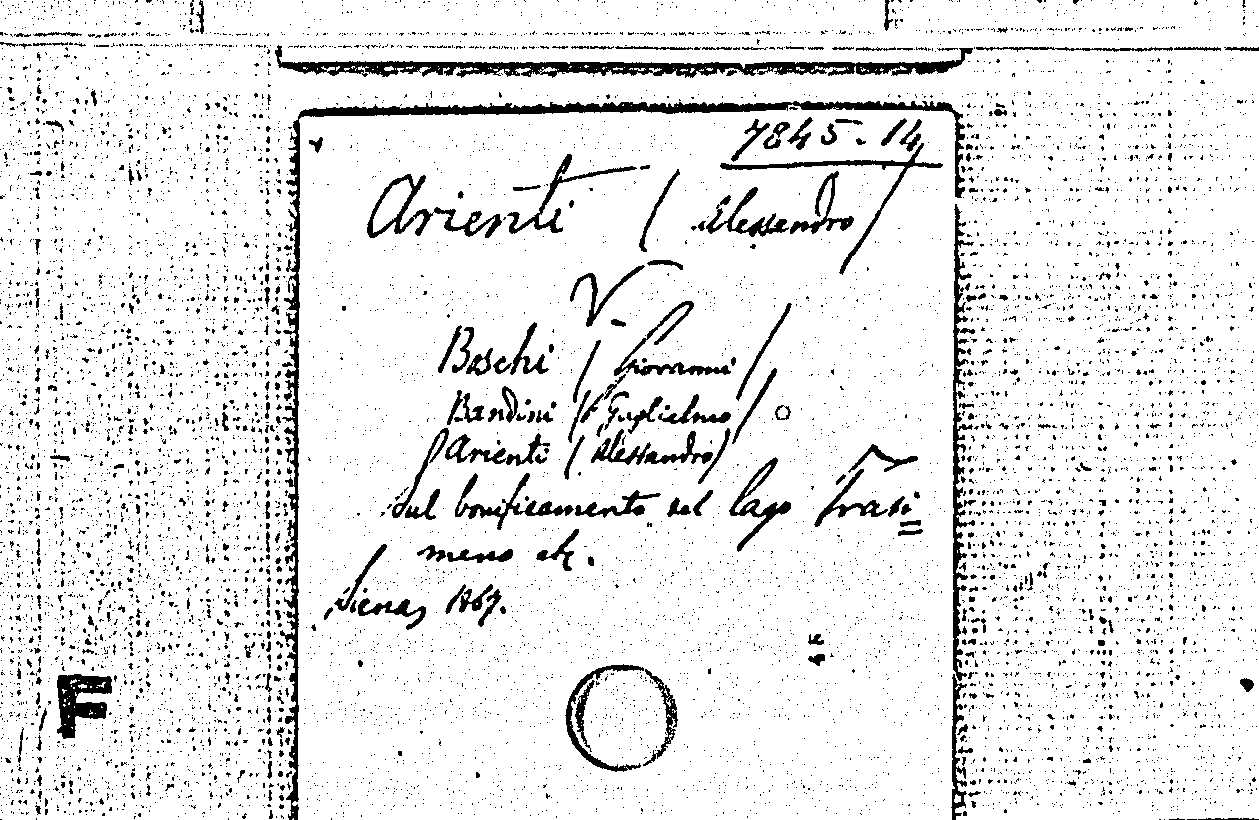 7845.14
Arienti (Alessandro)
V.
Boschi (Giovanni)
Bandini (Guglielmo)
Arienti (Alessandro)
Sul bonificamento del lago Trasi=
meno etc.
Siena, 1867.
F